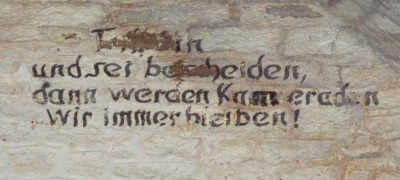 und sei bescheiden,
dann werden Kameraden
Wir immer bleiben!